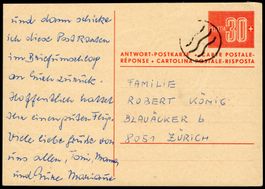 und dann schicke
ich diese Postkarten
im Briefumschlag
an Euch zurück.
Hoffentlich hattet
Ihr einen guten Flug.
Viele liebe Grüße von
uns allen,
und Marianne
30+
ANTWORT-POSTKARTE CARTE POSTALE-
RÉPONSE • CARTOLINA POSTALE-RISPOSTA
FAMILIE
ROBERT KÖNIG
BLAUÄCKER 6
8051 ZÜRICH